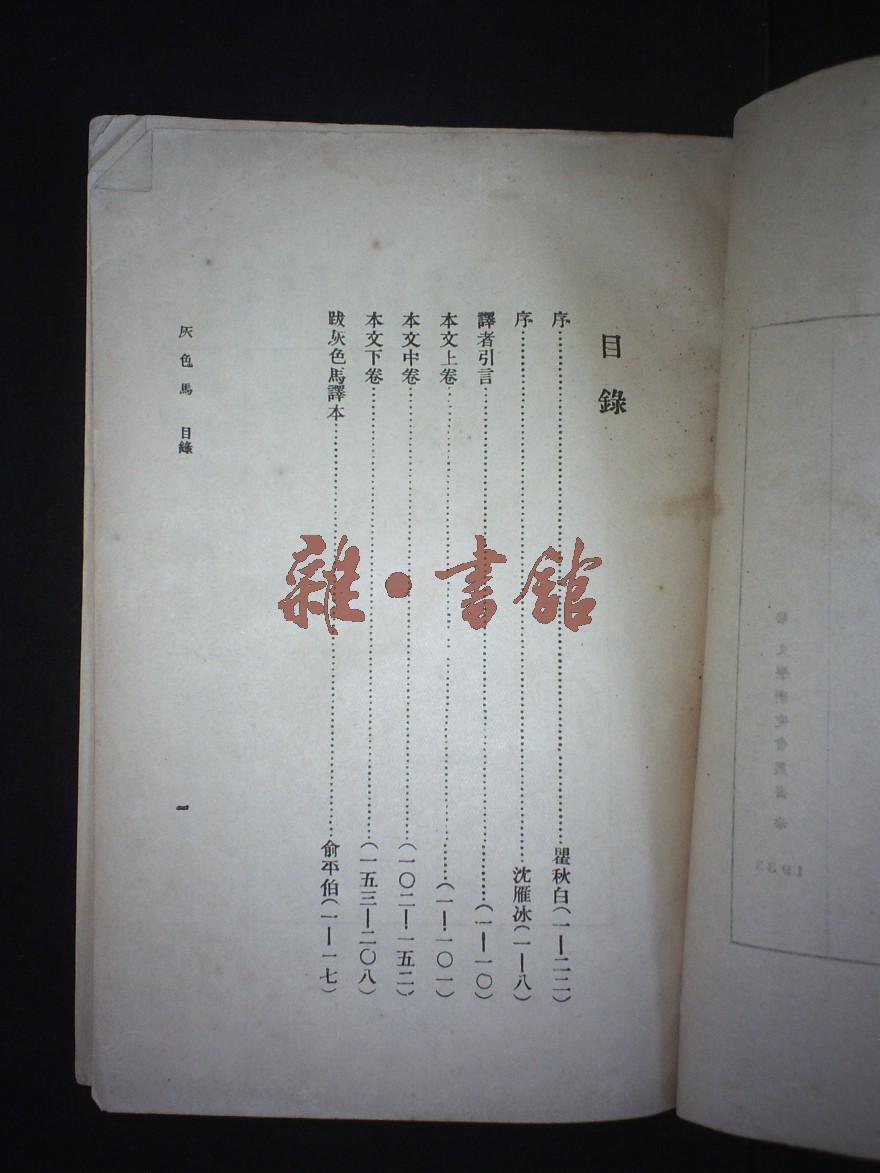 目錄
序……瞿秋白(一—二二)
序……沈雁冰(一—八)
譯者引言……(一—一〇)
本文上卷……(一—一〇一)
本文中卷……(一〇二—一五二)
本文下卷……(一五三—二〇八)
跋灰色馬譯本……俞平伯(一—一七)
灰色馬 目錄
一
雜·書館